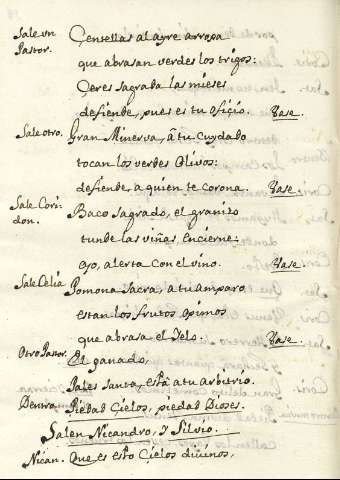 Sale vn Pastor. Centellas al ayre arroxa
que abrasan verdes los trigos:
Ceres sagrada las mieses
defiende, pues es tu oficio. Vase.
Sale otro. Gran Minerva, â tu cuydado
tocan los verdes Olivos:
defiende, a quien te corona. Vase.
Sale Coridon. Baco sagrado, el granizo
tunde las viñas, encierne:
ojo, alerta con el vino. Vase.
Sale Celia Pomona sacra, a tu amparo
estan los frutos opimos
que abrasa el Yelo: Vase.
Otro Pastor. El ganado,
Pales santa, està a tu arbitrio.
Dentro. Piedad Cielos, piedad Dioses.
Salen Nicandro, y Silvio.
Nican. Que es esto Cielos divinos,